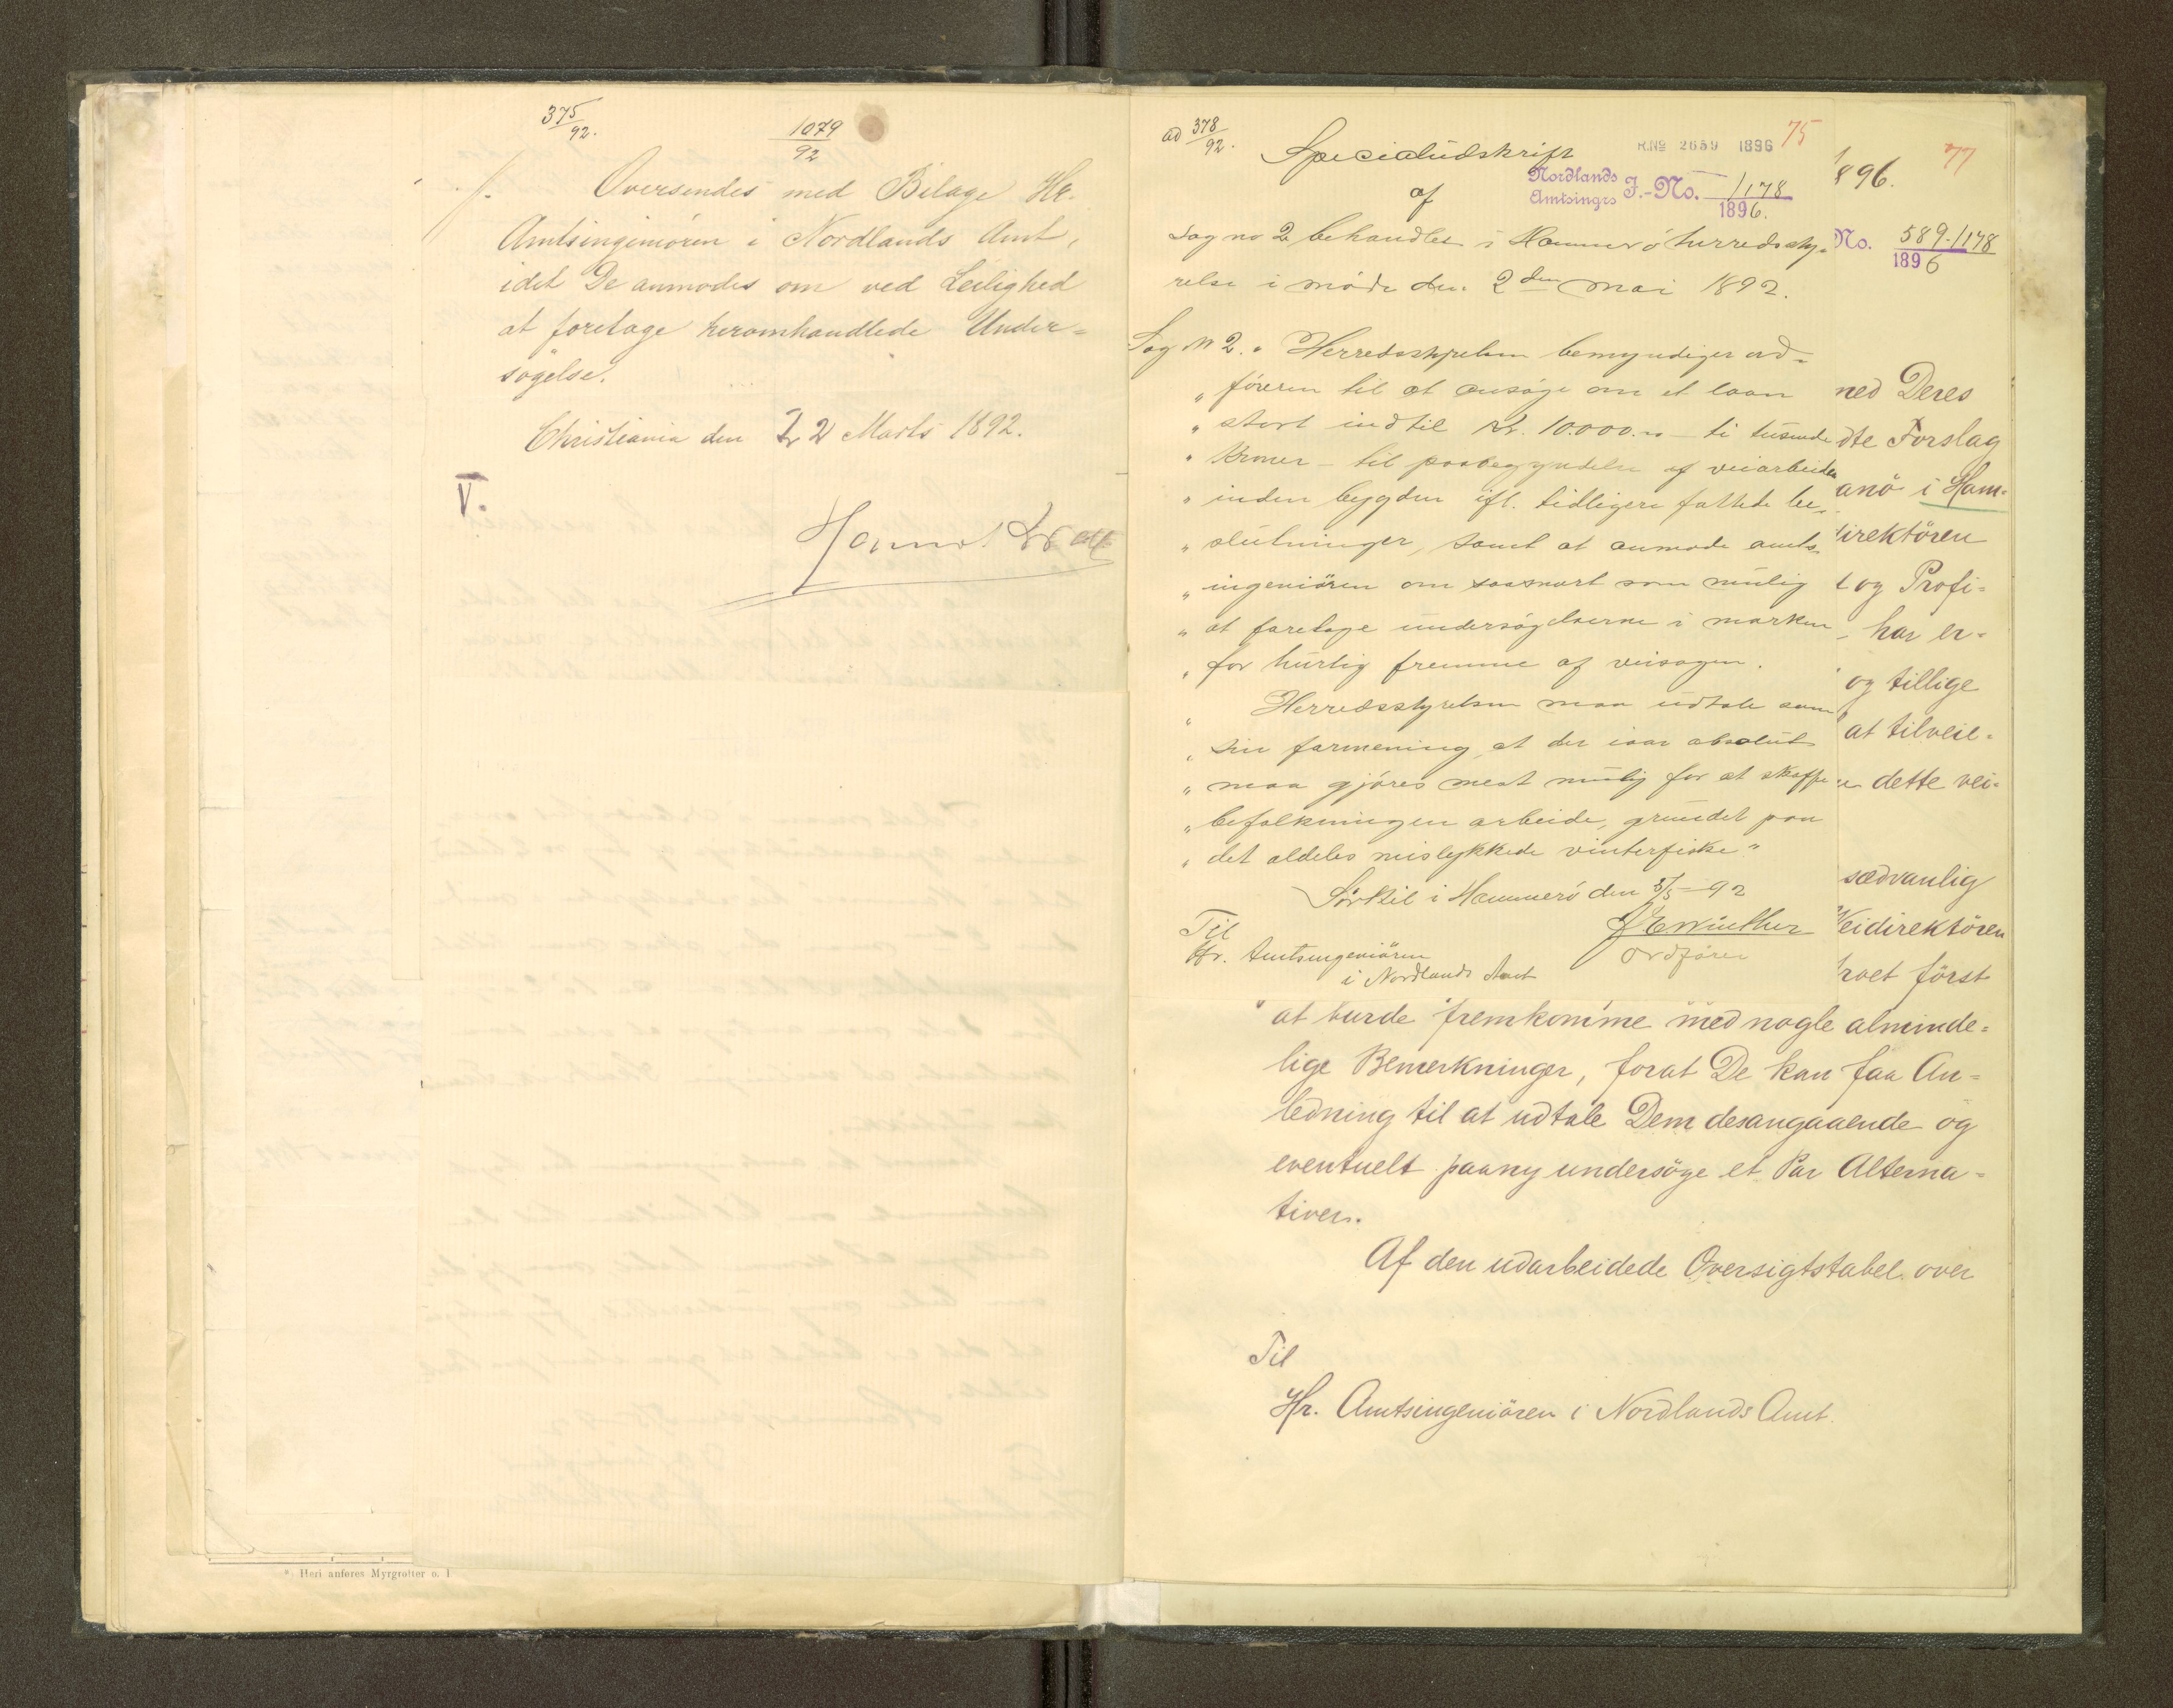 375/92.
1079
92
./. Oversendes med Bilage Hr.
Amtsingeniören i Nordlands Amt,
idet De anmodes om ved Leilighed
at foretage heromhandlede Under=
sögelse.
Christiania den 22 Marts 1892.
V.
* Heri anføres Myrgrøfter o. l
ad 378/92.
Specialudskrift
af
R.No 2659 1896
75
Nordlands Amtsingrs J.-No. 1178
1896.
Sag no 2 behandlet i Hammerö herredssty-
relse i möde den 2den mai 1892.
Sag No 2. " Herredsstyrelsen bemyndiger ord-
" föreren til at ansöge om et laan
" stort indtil kr. 10.000.00 – ti tusende
" kroner – til paabegyndelse af veiarbeider
" inden bygden ifl. tidligere fattede be-
" slutninger, samt at anmode amts-
" ingeniören om saasnart som mulig
" at foretage undersögelserne i marken
" for hurtig fremme af veisagen.
" Herredsstyrelsen maa udtale som
" sin formening, at der iaar absolut
" maa gjöres mest mulig for at skaffe
" befolkningen arbeide, grundet paa
" det aldeles mislykkede vinterfiske"
i Hammerö den 5/5 – 92
Winther
Ordförer
Til
Hr. Amtsingeniören
i Nordlands Amt
896.
77
No. 589.1178
1896
ned Deres
dte Forslag
anö i Ham=
direktören
t og Profi=
, har er=
og tillige
at tilveie=
dette vei=
sædvanlig
Veidirektören
rvet först
at burde fremkomme med nogle alminde=
lige Bemerkninger, forat De kan faa An=
ledning til at udtale Dem desangaaende og
eventuelt paany undersöge et Par Alterna=
tiver.
Af den udarbeidede Oversigtstabel over
Til
Hr. Amtsingeniören i Nordlands Amt.